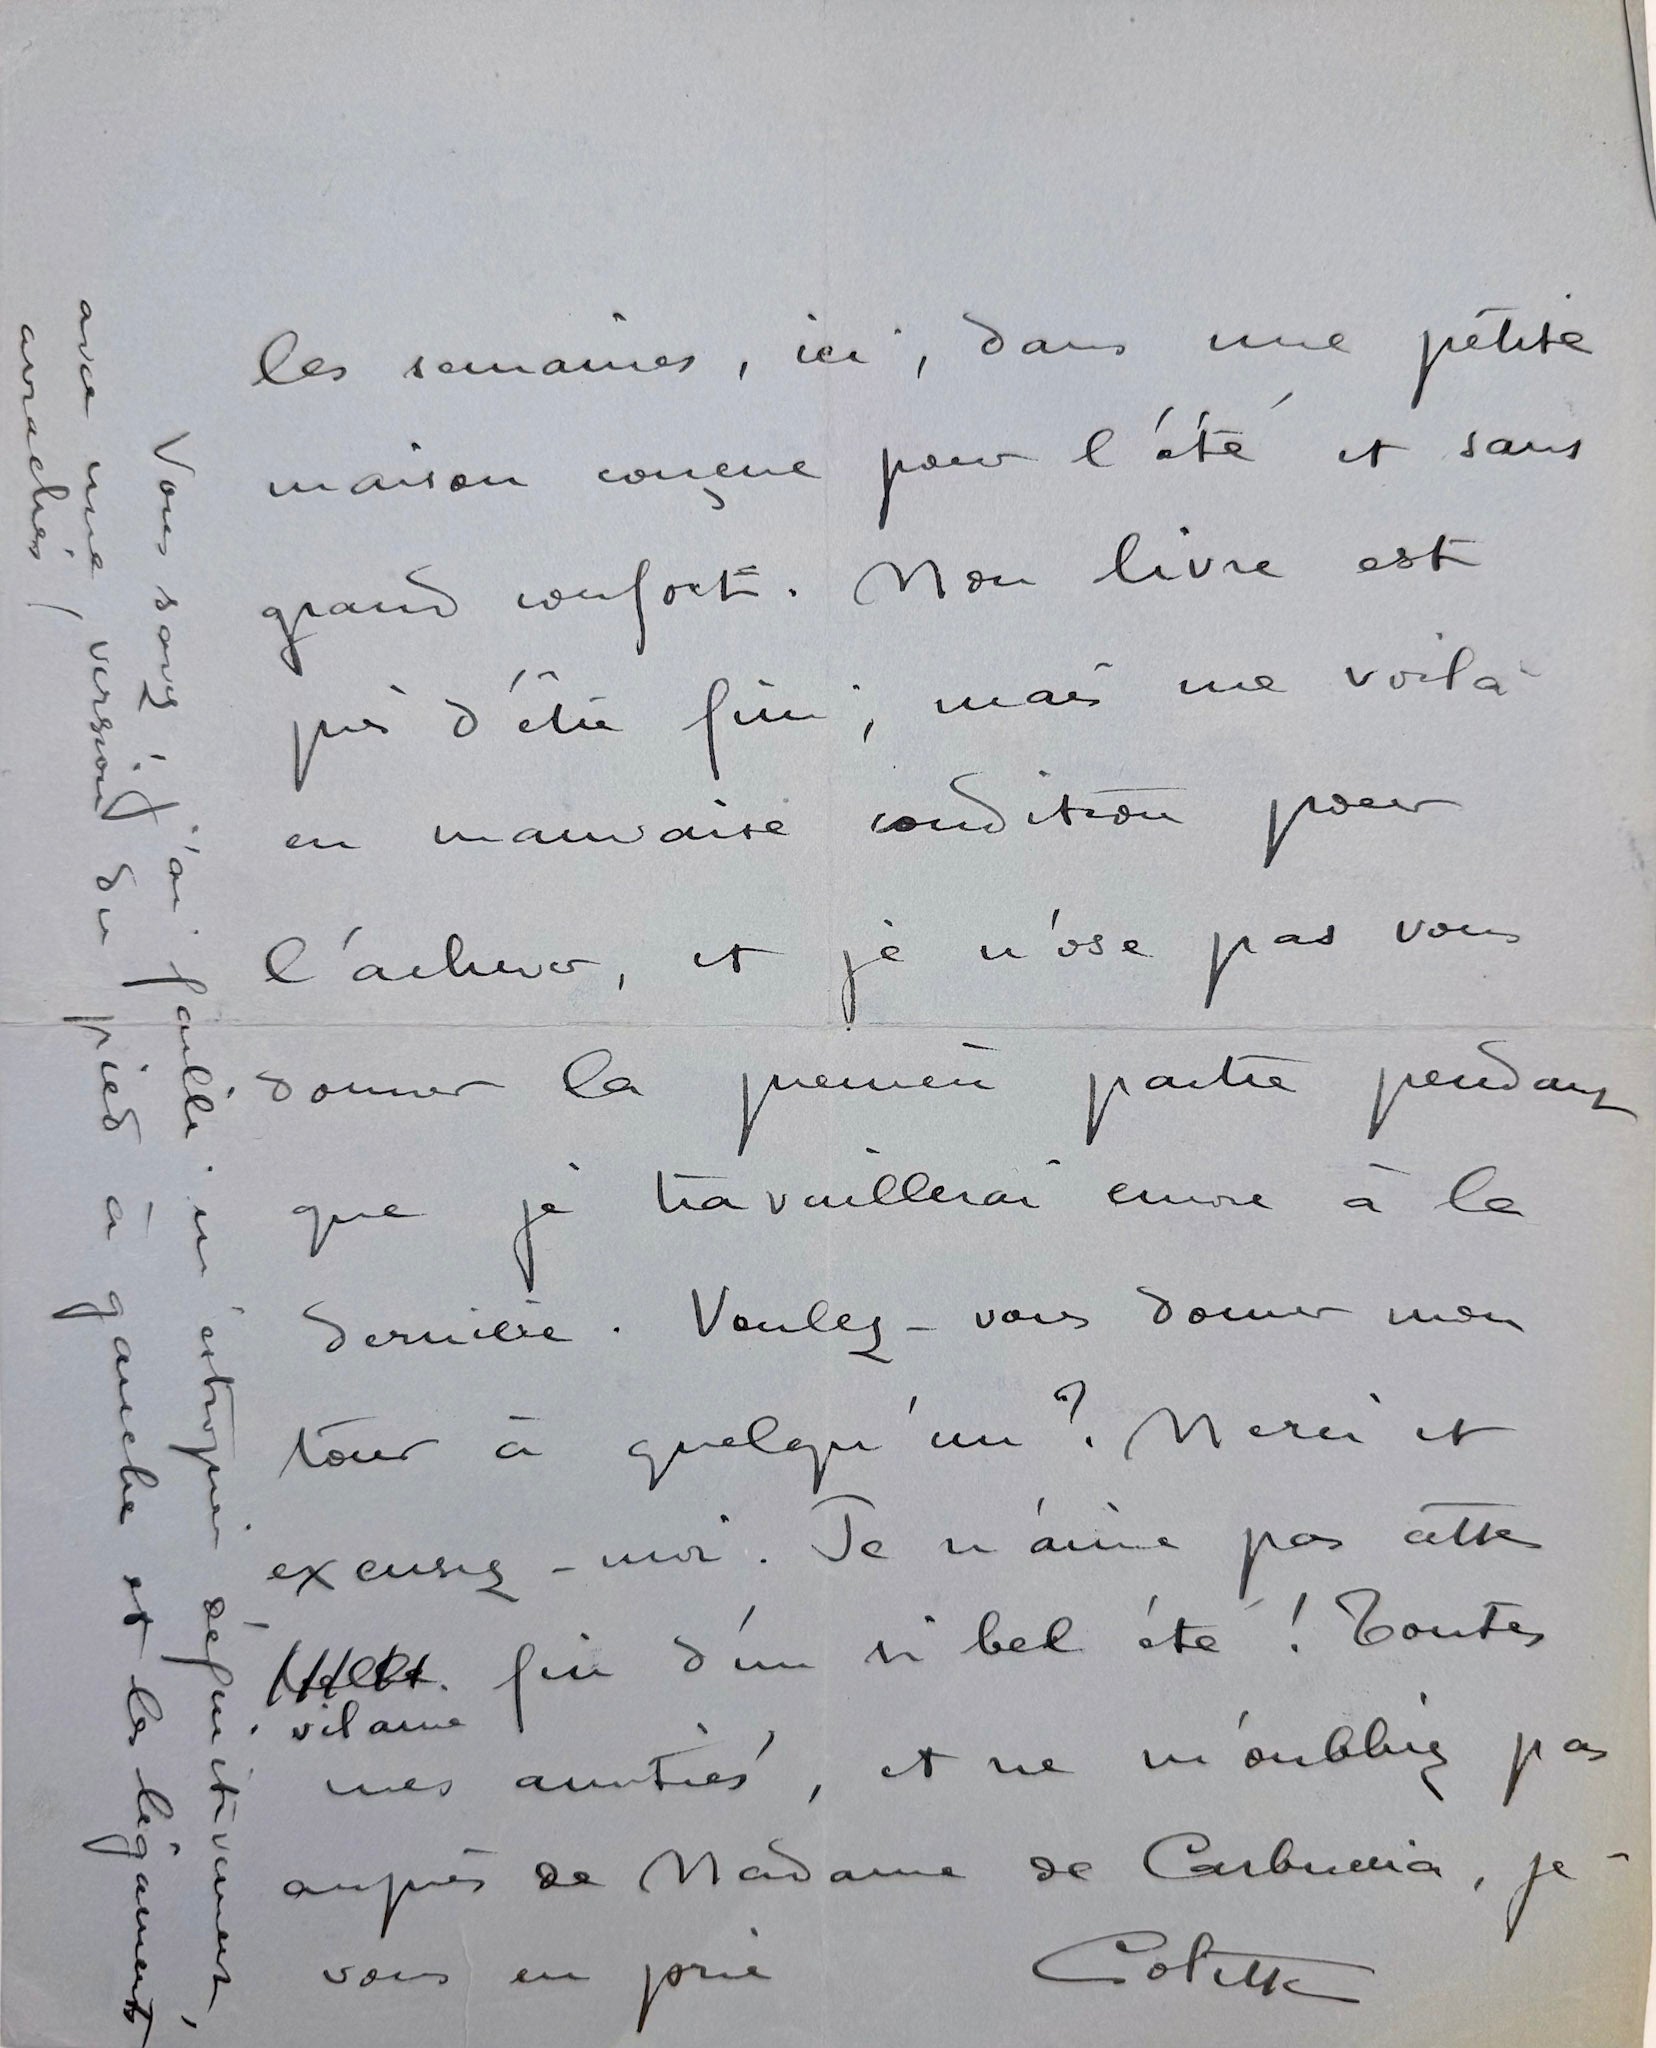 les semaines, ici, dans une petite
maison conçue pour l'été et sans
grand confort. Mon livre est
près d'être fini, mais me voilà
en mauvaise condition pour
l'achever, et je n'ose pas vous
donner la première partie pendant
que je travaillerai encore à la
dernière. Voulez-vous donner mon
tour à quelqu'un? Merci et
excusez-moi. Je n'aime pas cette
vilaine fin d'un si bel été! Toutes
mes amitiés, et ne m'oubliez pas
auprès de Madame de Carbuccia, je
vous en prie
Colette
Vous savez, j'ai failli m'estropier définitivement,
avec une version du pied à gauche et les ligaments
arrachés!